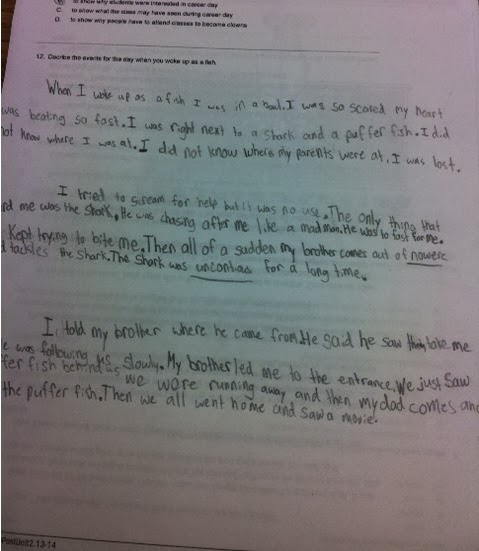 to show why students were interested in career day
C. to show what the class may have seen during career day
D. to show why people have to attend classes to become clowns
12. Decribe the events for the day when you woke up as a fish.
When I woke up as a fish I was in a boul. I was so scared my heart
was beating so fast. I was right next to a shark and a puffer fish. I did
not know where I was at. I did not know where my parents were at. I was lost.
I tried to scream for help but it was no use. The only thing that
me was the shark. He was chasing after me like a mad man. He was to fast for me.
Kept trying to bite me. Then all of a sudden my brother comes out of nowere
tackles the shark. The shark was uncontias for a long time.
I told my brother where he came from. He said he saw take me
was following us slowly. My brother led me to the entrance. We just saw
fer fish behind us we were running away and then my dad comes and
the puffer fish. Then we all went home and saw a movie.
PostUnit2.13-14